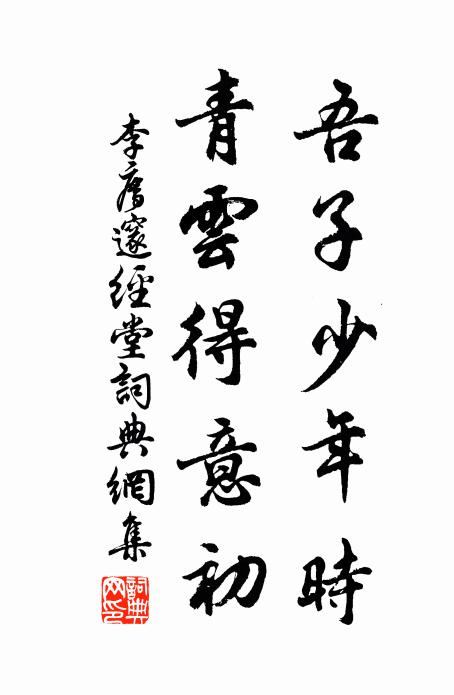 吾子少年時
青雲得意初
李廌邃經堂詞典網集
詞典網印